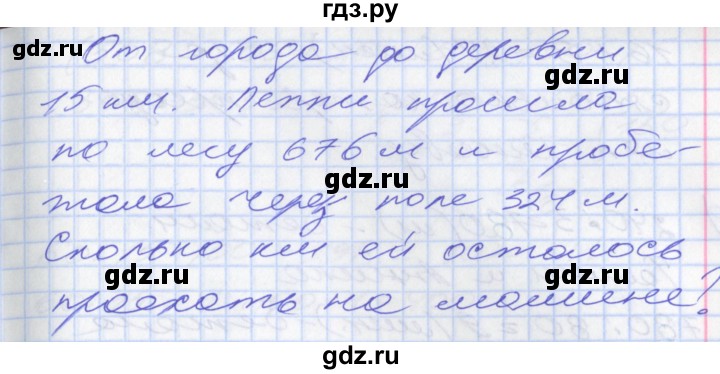 гдз.ру
gdz.ru gdz.ru
От города до деревни
gdz.ru
15 км. Пеппи прошла
gdz.ru
по лесу 676 м и пробе-
gdz.ru
жала через поле 324 м.
Сколько км ей осталось
gdz.ru gdz.ru
проехать на машине?
gdz.ru